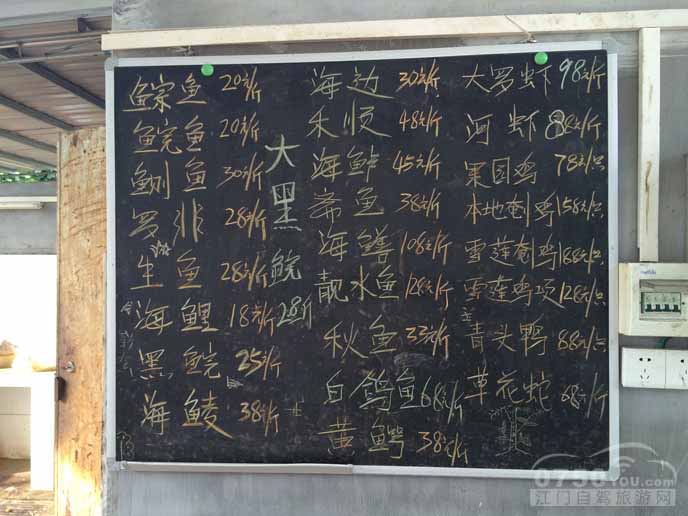 鯮鱼 20元/斤
鲩鱼 20元/斤
鲗鱼 30元/斤
罗非 28元/斤
生鱼 28元/斤
海鲤 18元/斤
黑鲩 25/斤
海鲮 38元/斤
大黑鲩 28/斤
海边 30元/斤
禾顺 48元/斤
海鲈 45元/斤
斋鱼 38元/斤
海鳝 108元/斤
靓水鱼 128元/斤
秋鱼 33元/斤
白鸽鱼 68元/斤
黄鳄 38元/斤
大罗虾 98元/斤
河虾 88元/斤
果园鸡 78元/只
本地劏鸡 158元/只
雪莲劏鸡 188元/只
雪莲鸡项 128元/只
青头鸭 88元/只
草花蛇 68元/斤
0750YOU.com
江门自驾旅游网